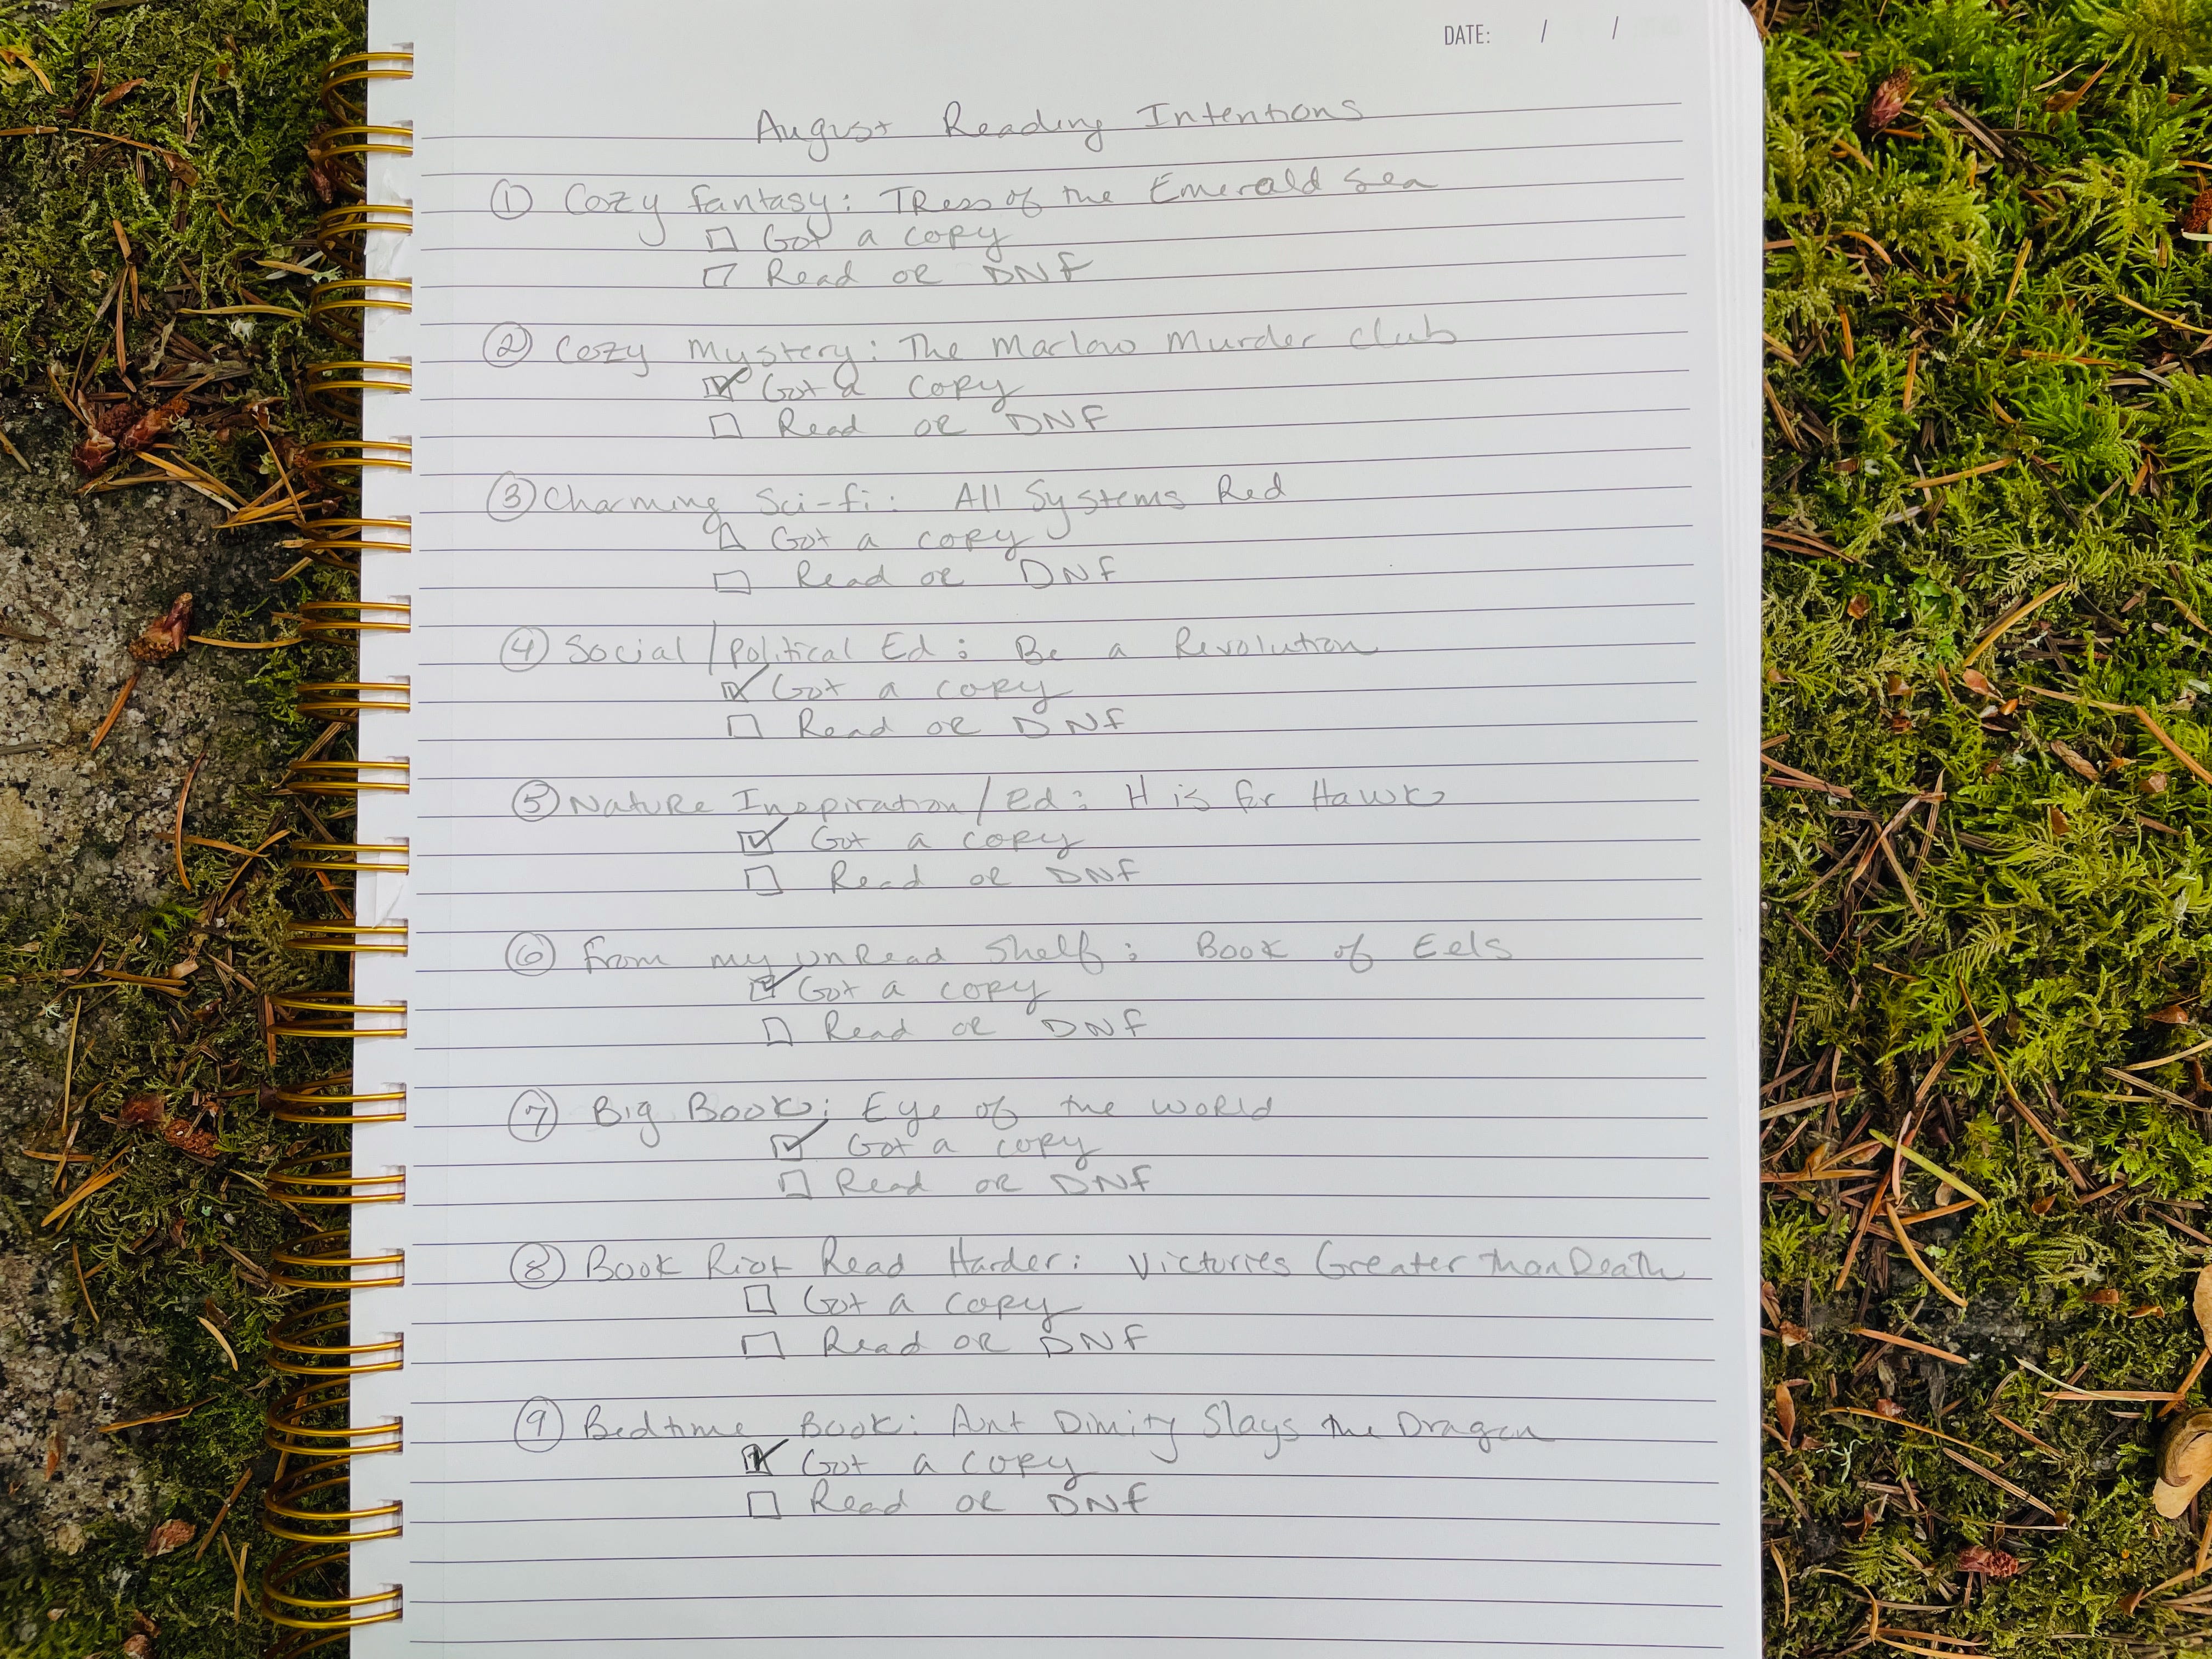 DATE: / /
August Reading Intentions
① Cozy fantasy: Tress of the Emerald Sea
☐ Got a copy
☐ Read or DNF
② Cozy Mystery: The Marlow Murder Club
☑ Got a copy
☐ Read or DNF
③ Charming Sci-fi: All Systems Red
☐ Got a copy
☐ Read or DNF
④ Social/Political Ed: Be a Revolution
☑ Got a copy
☐ Read or DNF
⑤ Nature Inspiration/Ed: H is for Hawk
☑ Got a copy
☐ Read or DNF
⑥ From my unRead Shelf: Book of Eels
☑ Got a copy
☐ Read or DNF
⑦ Big Book: Eye of the World
☑ Got a copy
☐ Read or DNF
⑧ Book Riot Read Harder: Victories Greater than Death
☐ Got a copy
☐ Read or DNF
⑨ Bedtime Book: Aunt Dimity Slays the Dragon
☑ Got a copy
☐ Read or DNF